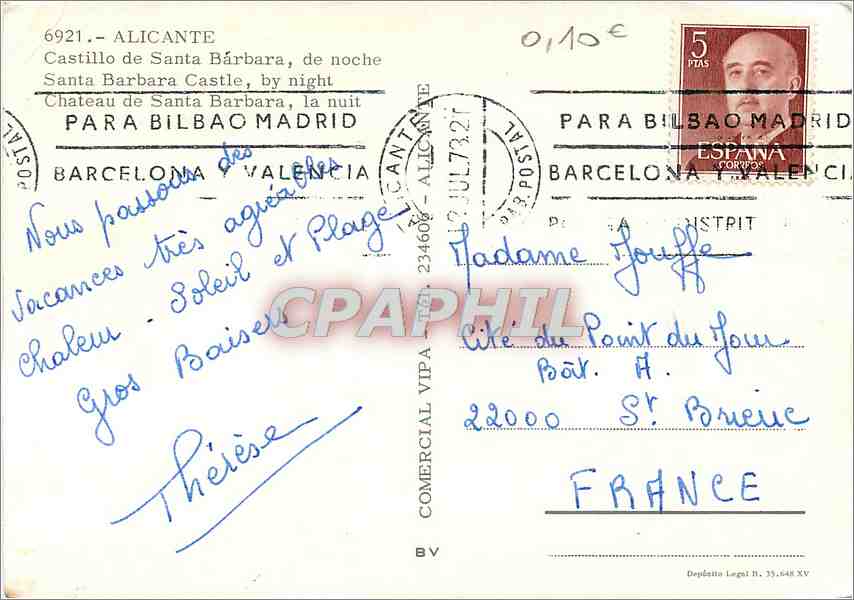 6921.- ALICANTE
Castillo de Santa Bárbara, de noche
Santa Barbara Castle, by night
Chateau de Santa Barbara, la nuit
0,10€
5
PTAS
ESPAÑA
CORREOS
POSTAL
PARA BILBAO MADRID
BARCELONA Y VALENCIA
ALICANTE
JUL.73.21
PAR.POSTAL
PARA BILBAO MADRID
BARCELONA Y VALENCIA
DISTRIT
Nous passons des
vacances très agréables
Chaleur - Soleil et Plage
Gros Baisers
Thérèse
COMERCIAL VIPA - Tél. 234606 - ALICANTE
BV
Madame Jouffe
Cité du Point du Jour
Bât. A.
22000 St Brieuc
FRANCE
Depósito Legal B. 35.648 XV
CPAPHIL